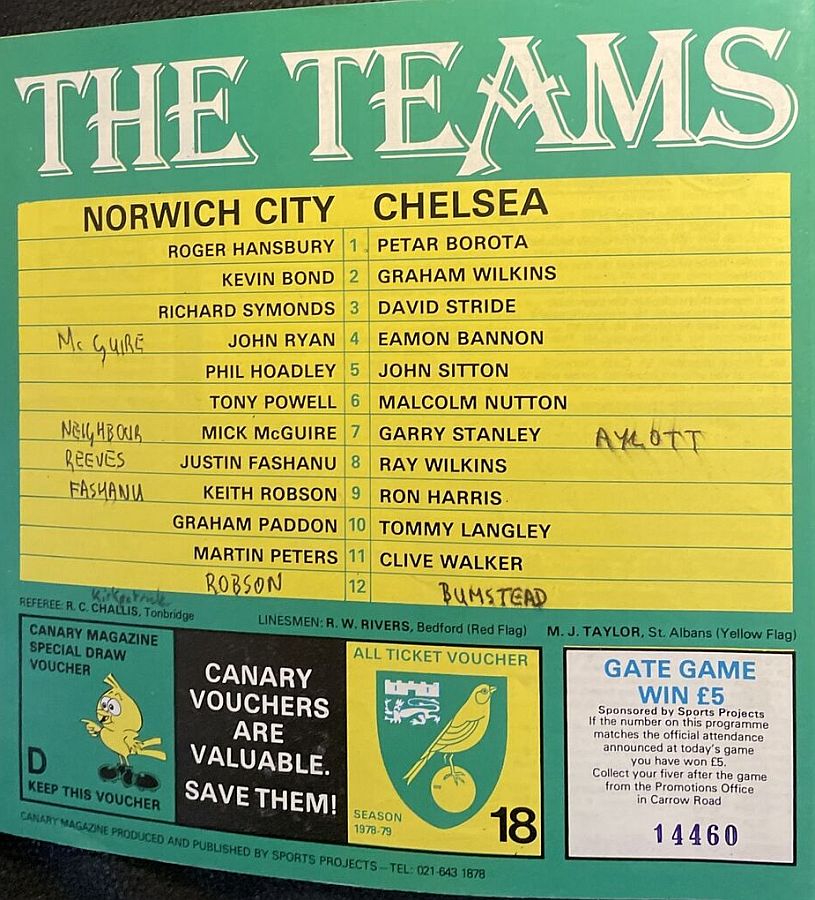 THE TEAMS
NORWICH CITY CHELSEA
ROGER HANSBURY 1 PETAR BOROTA
KEVIN BOND 2 GRAHAM WILKINS
RICHARD SYMONDS 3 DAVID STRIDE
Mc GUIRE JOHN RYAN 4 EAMON BANNON
PHIL HOADLEY 5 JOHN SITTON
TONY POWELL 6 MALCOLM NUTTON
NEIGHBOUR MICK McGUIRE 7 GARRY STANLEY AYLOTT
REEVES JUSTIN FASHANU 8 RAY WILKINS
FASHANU KEITH ROBSON 9 RON HARRIS
GRAHAM PADDON 10 TOMMY LANGLEY
MARTIN PETERS 11 CLIVE WALKER
ROBSON 12 BUMSTEAD
Kirkpatrick
REFEREE: R. C. CHALLIS, Tonbridge
LINESMEN: R. W. RIVERS, Bedford (Red Flag) M. J. TAYLOR, St. Albans (Yellow Flag)
CANARY MAGAZINE
SPECIAL DRAW
VOUCHER
D
KEEP THIS VOUCHER
CANARY
VOUCHERS
ARE
VALUABLE.
SAVE THEM!
ALL TICKET VOUCHER
SEASON
1978-79
18
GATE GAME
WIN £5
Sponsored by Sports Projects
If the number on this programme
matches the official attendance
announced at today's game
you have won £5.
Collect your fiver after the game
from the Promotions Office
in Carrow Road
14460
CANARY MAGAZINE PRODUCED AND PUBLISHED BY SPORTS PROJECTS—TEL: 021-643 1878